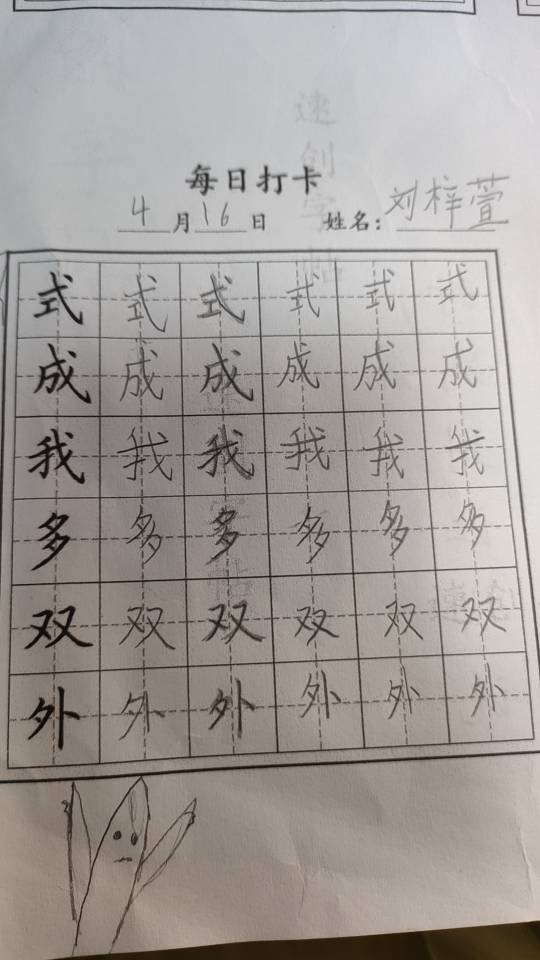 每日打卡
4月16日 姓名：刘梓萱
式 式 式 式 式 式
成 成 成 成 成 成
我 我 我 我 我 我
多 多 多 多 多 多
双 双 双 双 双 双
外 外 外 外 外 外